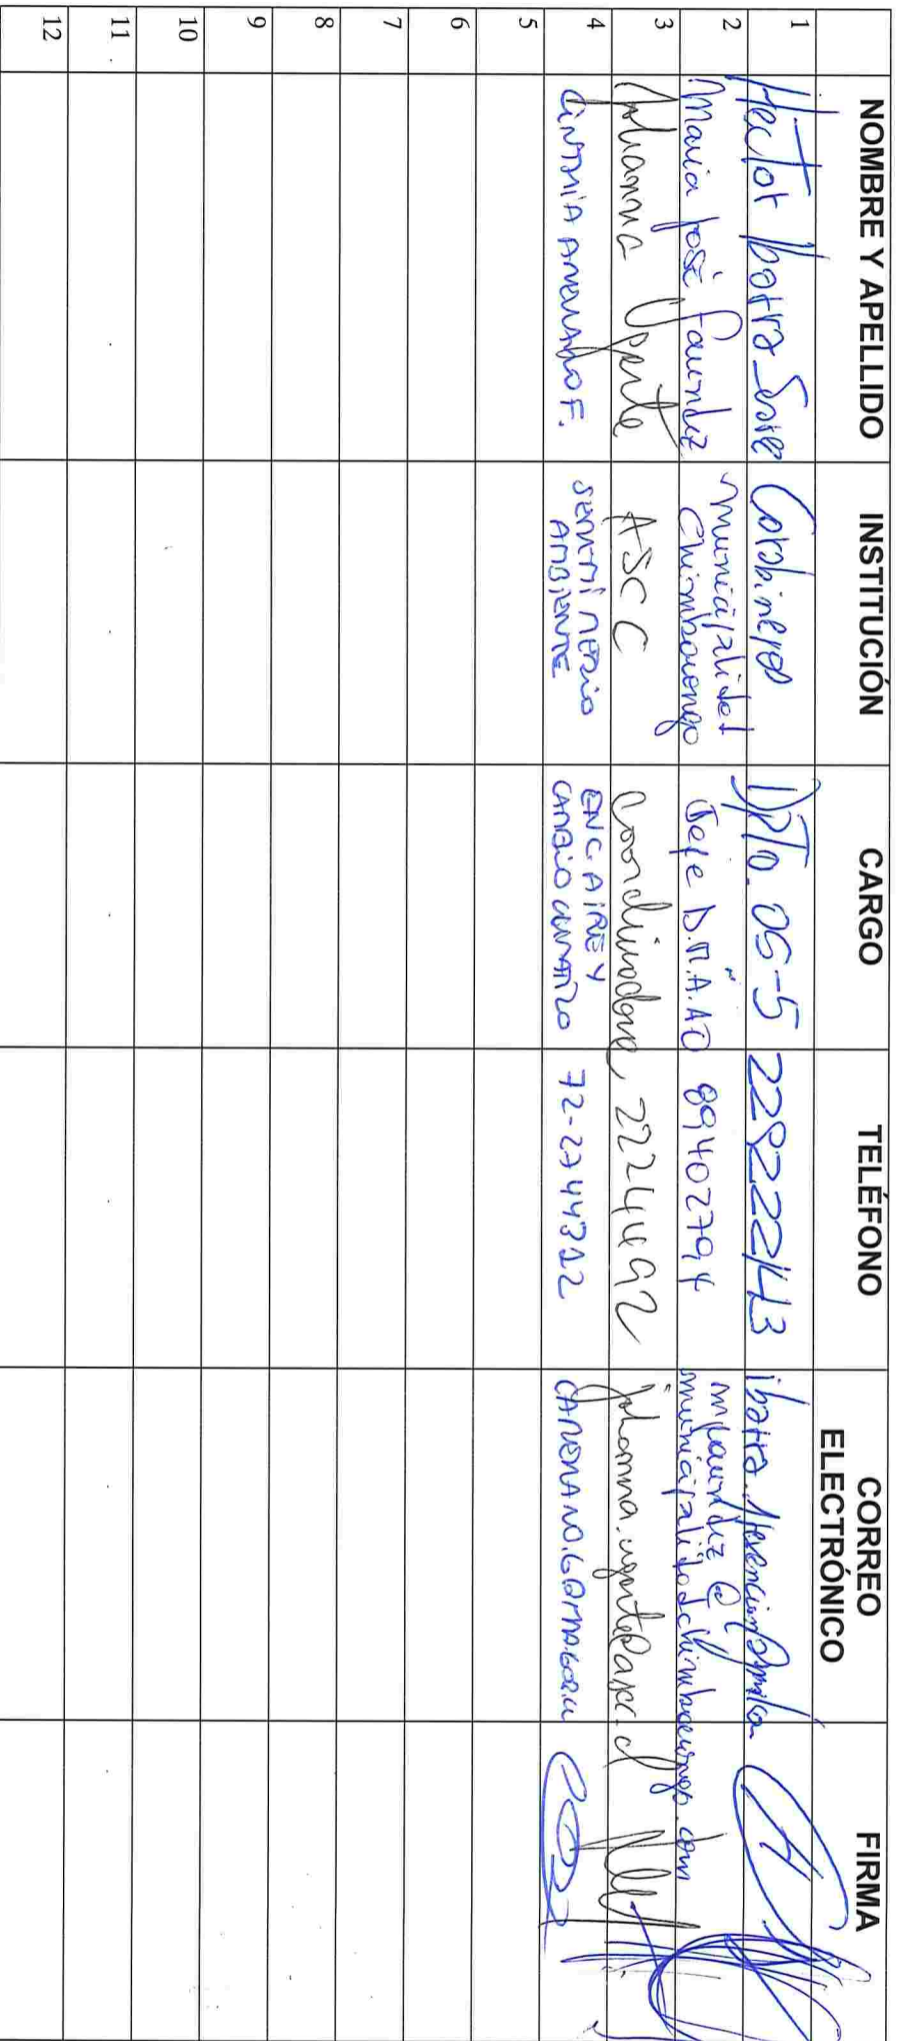 NOMBRE Y APELLIDO INSTITUCIÓN CARGO TELÉFONO CORREO ELECTRÓNICO FIRMA
1 Hector Ibarra Carabineros DPTO. OS-5 229222143
2 Maria José Faundez Municipalidad Chimbarongo Jefe D.M.A.AO 89402794 mjfaundez@municipalidadchimbarongo.com
3 Johanna Ugarte ASCC Coordinadora 22244492 johanna.ugarte@ascc.cl
4 F. SEREMI MEDIO AMBIENTE ENC. AIRE Y CAMBIO CLIMATICO 72-2744312
5
6
7
8
9
10
11
12